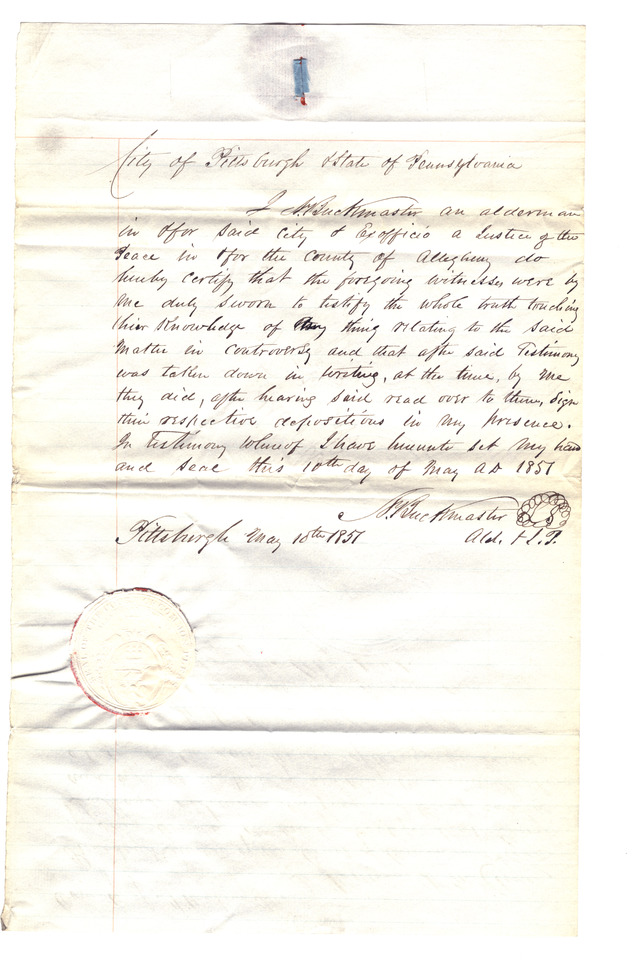 City of Pittsburgh & State of Pennsylvania
I N. Buckmaster an alderman
in & for said City & Exofficio a Justice of the
Peace in & for the County of Allegheny do
hereby certify that the foregoing witnesses were by
me duly sworn to testify the whole truth touching
their Knowledge of any thing relating to the said
Matter in controversy and that after said Testimony
was taken down in writing, at the time, by me
they did, after hearing said read over to them, sign
their respective depositions in my presence.
In Testimony whereof I have hereunto set my hand
and seal this 10th day of May AD 1851
N. Buckmaster
Pittsburgh May 10th 1851 Ald. & J.P.